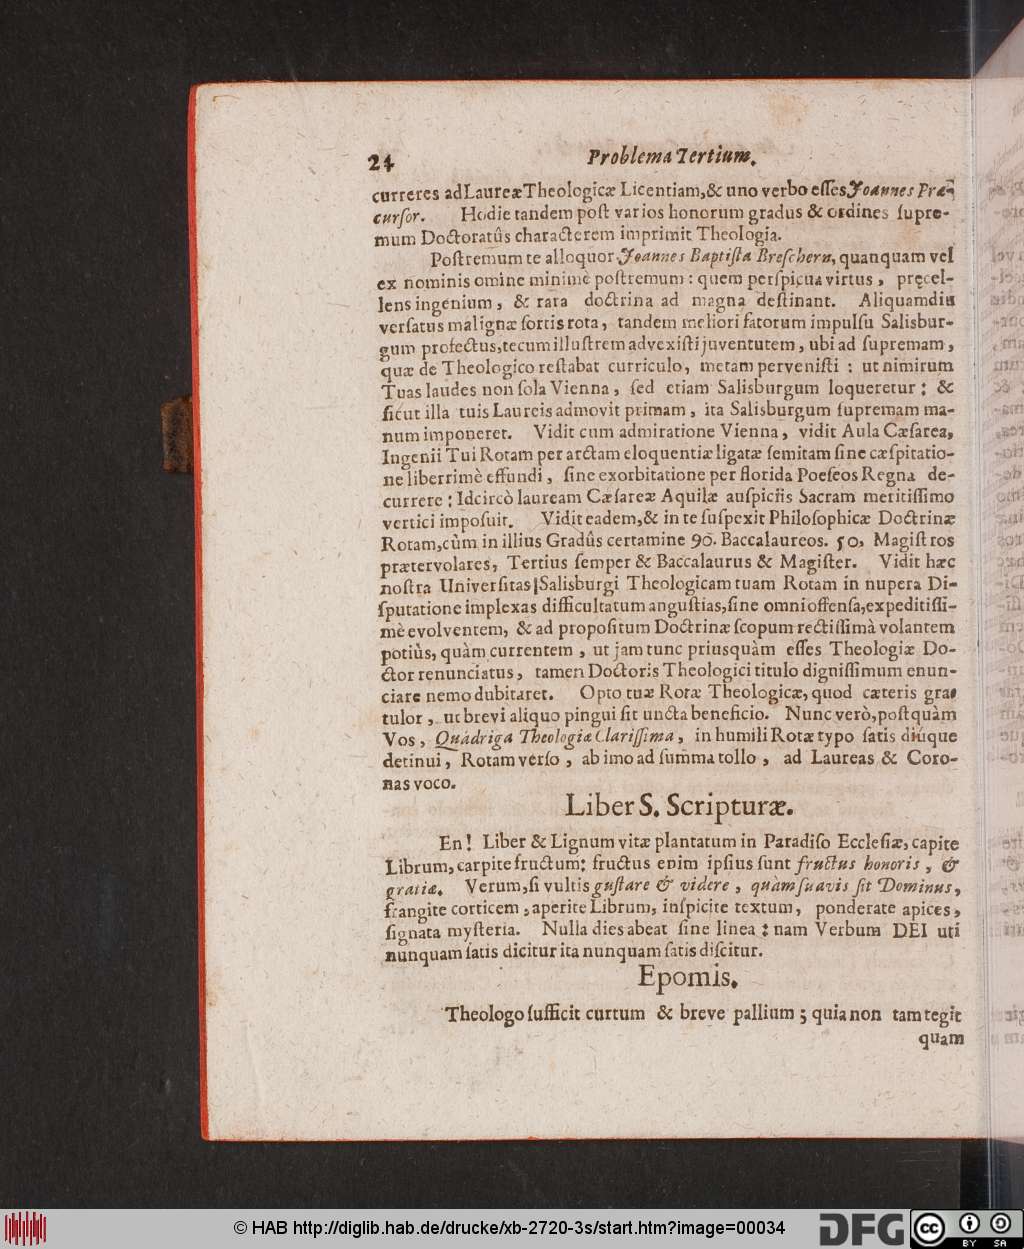 24 Problema Tertium.
curreres ad Laureæ Theologicæ Licentiam, & uno verbo esses Joannes Præ-
cursor. Hodie tandem post varios honorum gradus & ordines supre-
mum Doctoratûs characterem imprimit Theologia.
Postremum te alloquor Joannes Baptista Breschern, quanquam vel
ex nominis omine minimè postremum: quem perspicua virtus, pręcel-
lens ingenium, & rara doctrina ad magna destinant. Aliquamdiu
versatus malignæ sortis rota, tandem meliori fatorum impulsu Salisbur-
gum profectus, tecum illustrem advexisti juventutem, ubi ad supremam,
quæ de Theologico restabat curriculo, metam pervenisti: ut nimirum
Tuas laudes non sola Vienna, sed etiam Salisburgum loqueretur: &
sicut illa tuis Laureis admovit primam, ita Salisburgum supremam ma-
num imponeret. Vidit cum admiratione Vienna, vidit Aula Cæsarea,
Ingenii Tui Rotam per arctam eloquentiæ ligatæ semitam sine cæspitatio-
ne liberrimè effundi, sine exorbitatione per florida Poeseos Regna de-
currere: Idcircò lauream Cæsareæ Aquilæ auspiciis Sacram meritissimo
vertici imposuit. Vidit eadem, & in te suspexit Philosophicæ Doctrinæ
Rotam, cùm in illius Gradûs certamine 90. Baccalaureos. 50, Magistros
prætervolares, Tertius semper & Baccalaurus & Magister. Vidit hæc
nostra Universitas Salisburgi Theologicam tuam Rotam in nupera Di-
sputatione implexas difficultatum angustias, sine omni offensa, expeditissi-
mè evolventem, & ad propositum Doctrinæ scopum rectissimà volantem
potiùs, quàm currentem, ut jam tunc priusquàm esses Theologiæ Do-
ctor renunciatus, tamen Doctoris Theologici titulo dignissimum enun-
ciare nemo dubitaret. Opto tuæ Rotæ Theologicæ, quod cæteris gra-
tulor, ut brevi aliquo pingui sit uncta beneficio. Nunc verò, postquàm
Vos, Quadriga Theologiæ Clarissima, in humili Rotæ typo satis diúque
detinui, Rotam verso, ab imo ad summa tollo, ad Laureas & Coro-
nas voco.
Liber S. Scripturæ.
En! Liber & Lignum vitæ plantatum in Paradiso Ecclesiæ, capite
Librum, carpite fructum: fructus enim ipsius sunt fructus honoris, &
gratiæ. Verum, si vultis gustare & videre, quàm suavis sit Dominus,
frangite corticem, aperite Librum, inspicite textum, ponderate apices,
signata mysteria. Nulla dies abeat sine linea: nam Verbum DEI uti
nunquam satis dicitur ita nunquam satis discitur.
Epomis.
Theologo sufficit curtum & breve pallium; quia non tam tegit
quam
© HAB http://diglib.hab.de/drucke/xb-2720-3s/start.htm?image=00034
DFG
cc BY SA